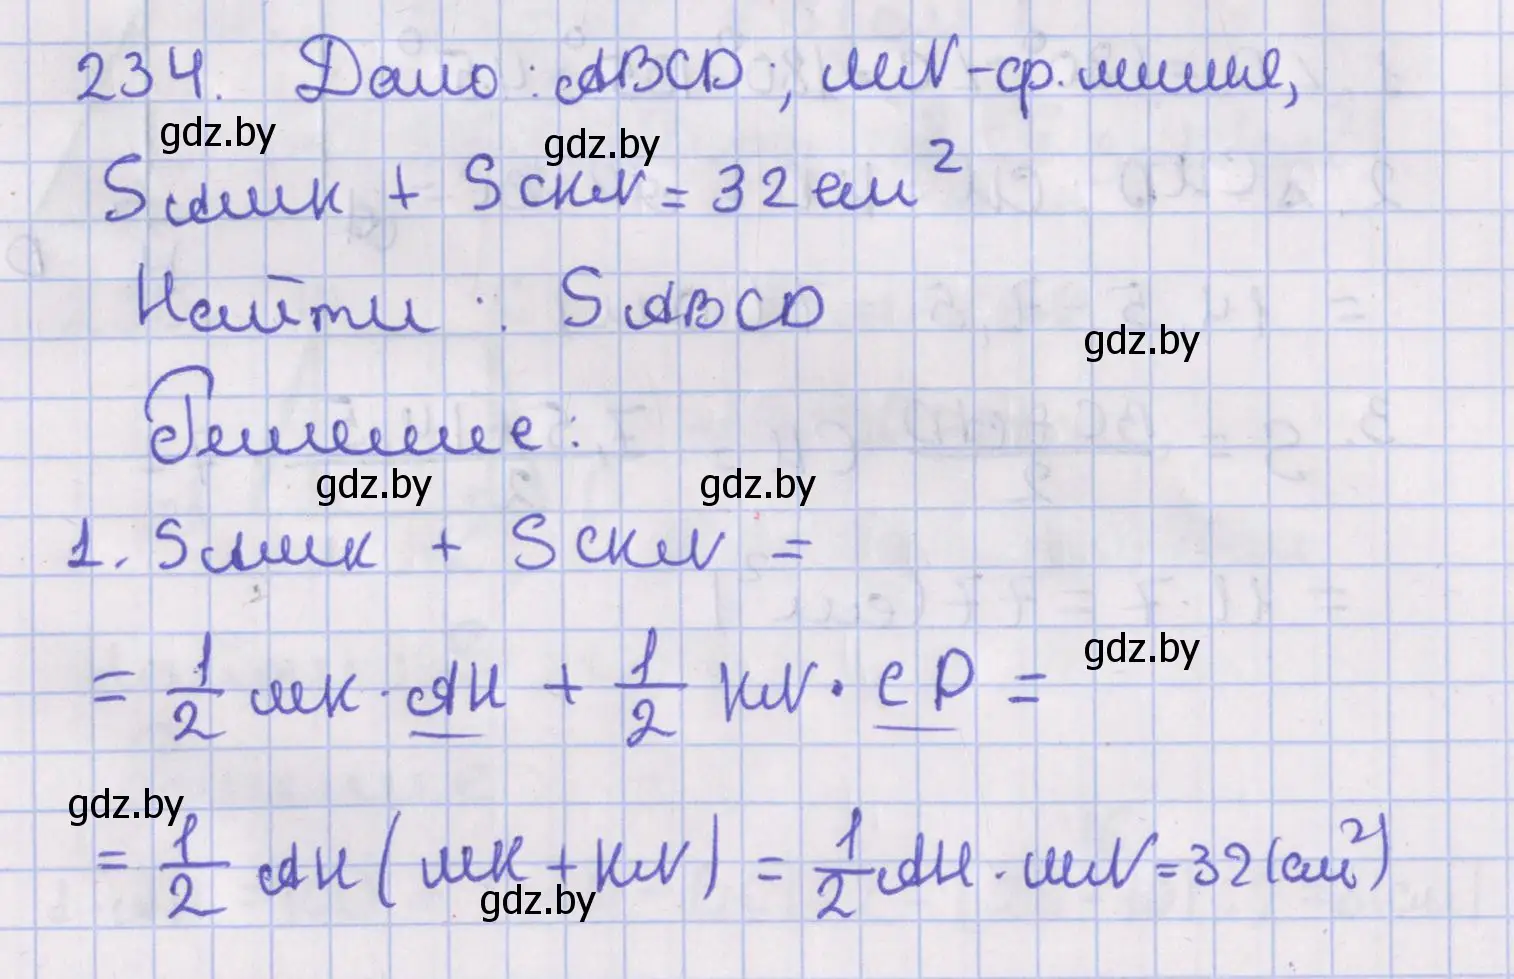 234. Дано: ABCD; MN-ср.линия,
gdz.by gdz.by
SAMK + SCKN = 32 см²
Найти: SABCD
gdz.by
Решение:
gdz.by gdz.by
1. SAMK + SCKN =
= 1/2 MK · AH + 1/2 KN · CP =
gdz.by
gdz.by
= 1/2 AH (MK + KN) = 1/2 AH · MN = 32 (см²)
gdz.by